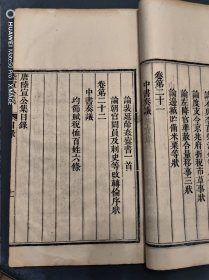 論度支令京兆府折稅市草事狀
論左降官準赦合量移事三狀
論邊城貯備米粟等狀
卷第二十一
中書奏議
論裴延齡姦蠹書一首
論朝官闕員及刺史等改轉倫序狀
卷第二十二
中書奏議
均節賦稅恤百姓六條
唐陸宣公集目錄
HUAWEI